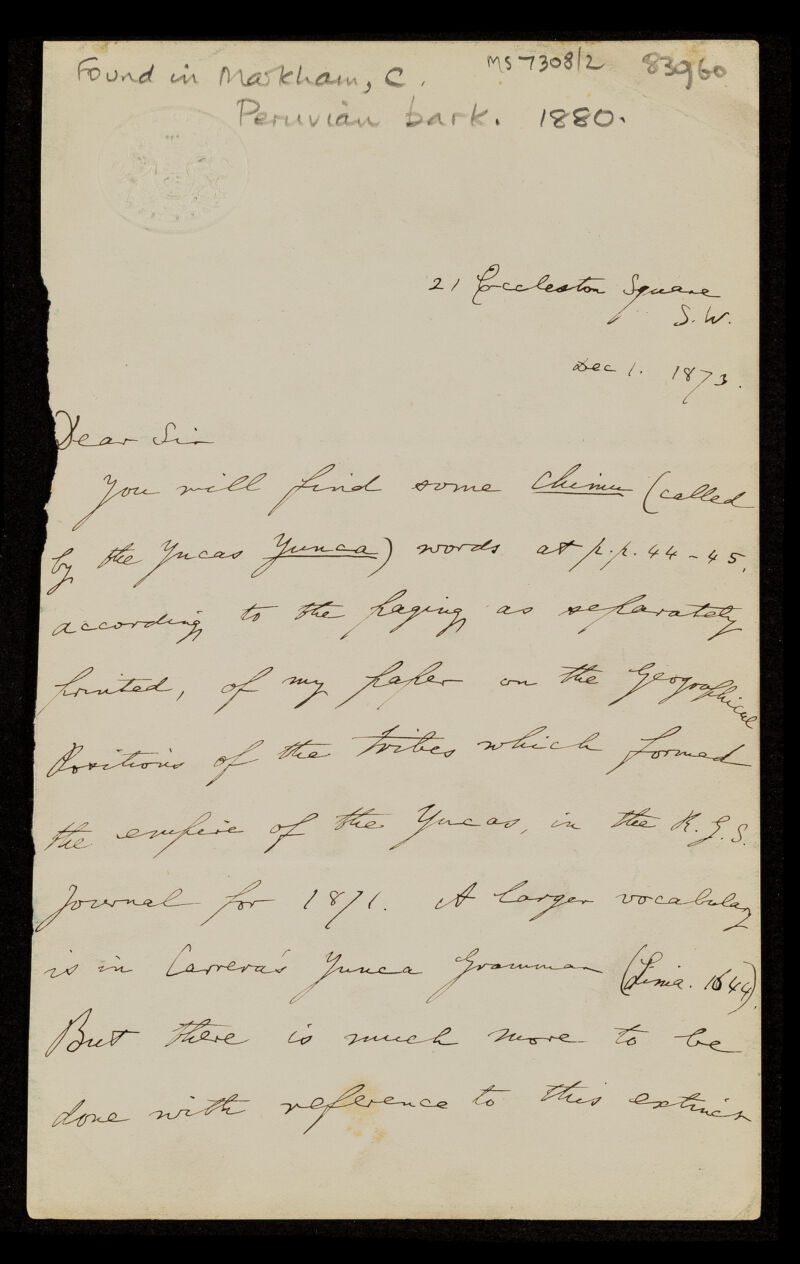 Found in Markham, C.
MS 7308/2
83960
Peruvian bark. 1880.
21 Eccleston Square
S.W.
Dec 1. 1873.
Dear Sir
You will find some Chimu (called
by the Yncas Yunca) words at p.p. 44-45,
according to the paging as separately
printed, of my paper on the Geographical
Positions of the tribes which formed
the empire of the Yncas, in the R.G.S.
Journal for 1871. A larger vocabulary
is in Carrera's Yunca Grammar (Lima. 1644).
But there is much more to be
done with reference to this extinct